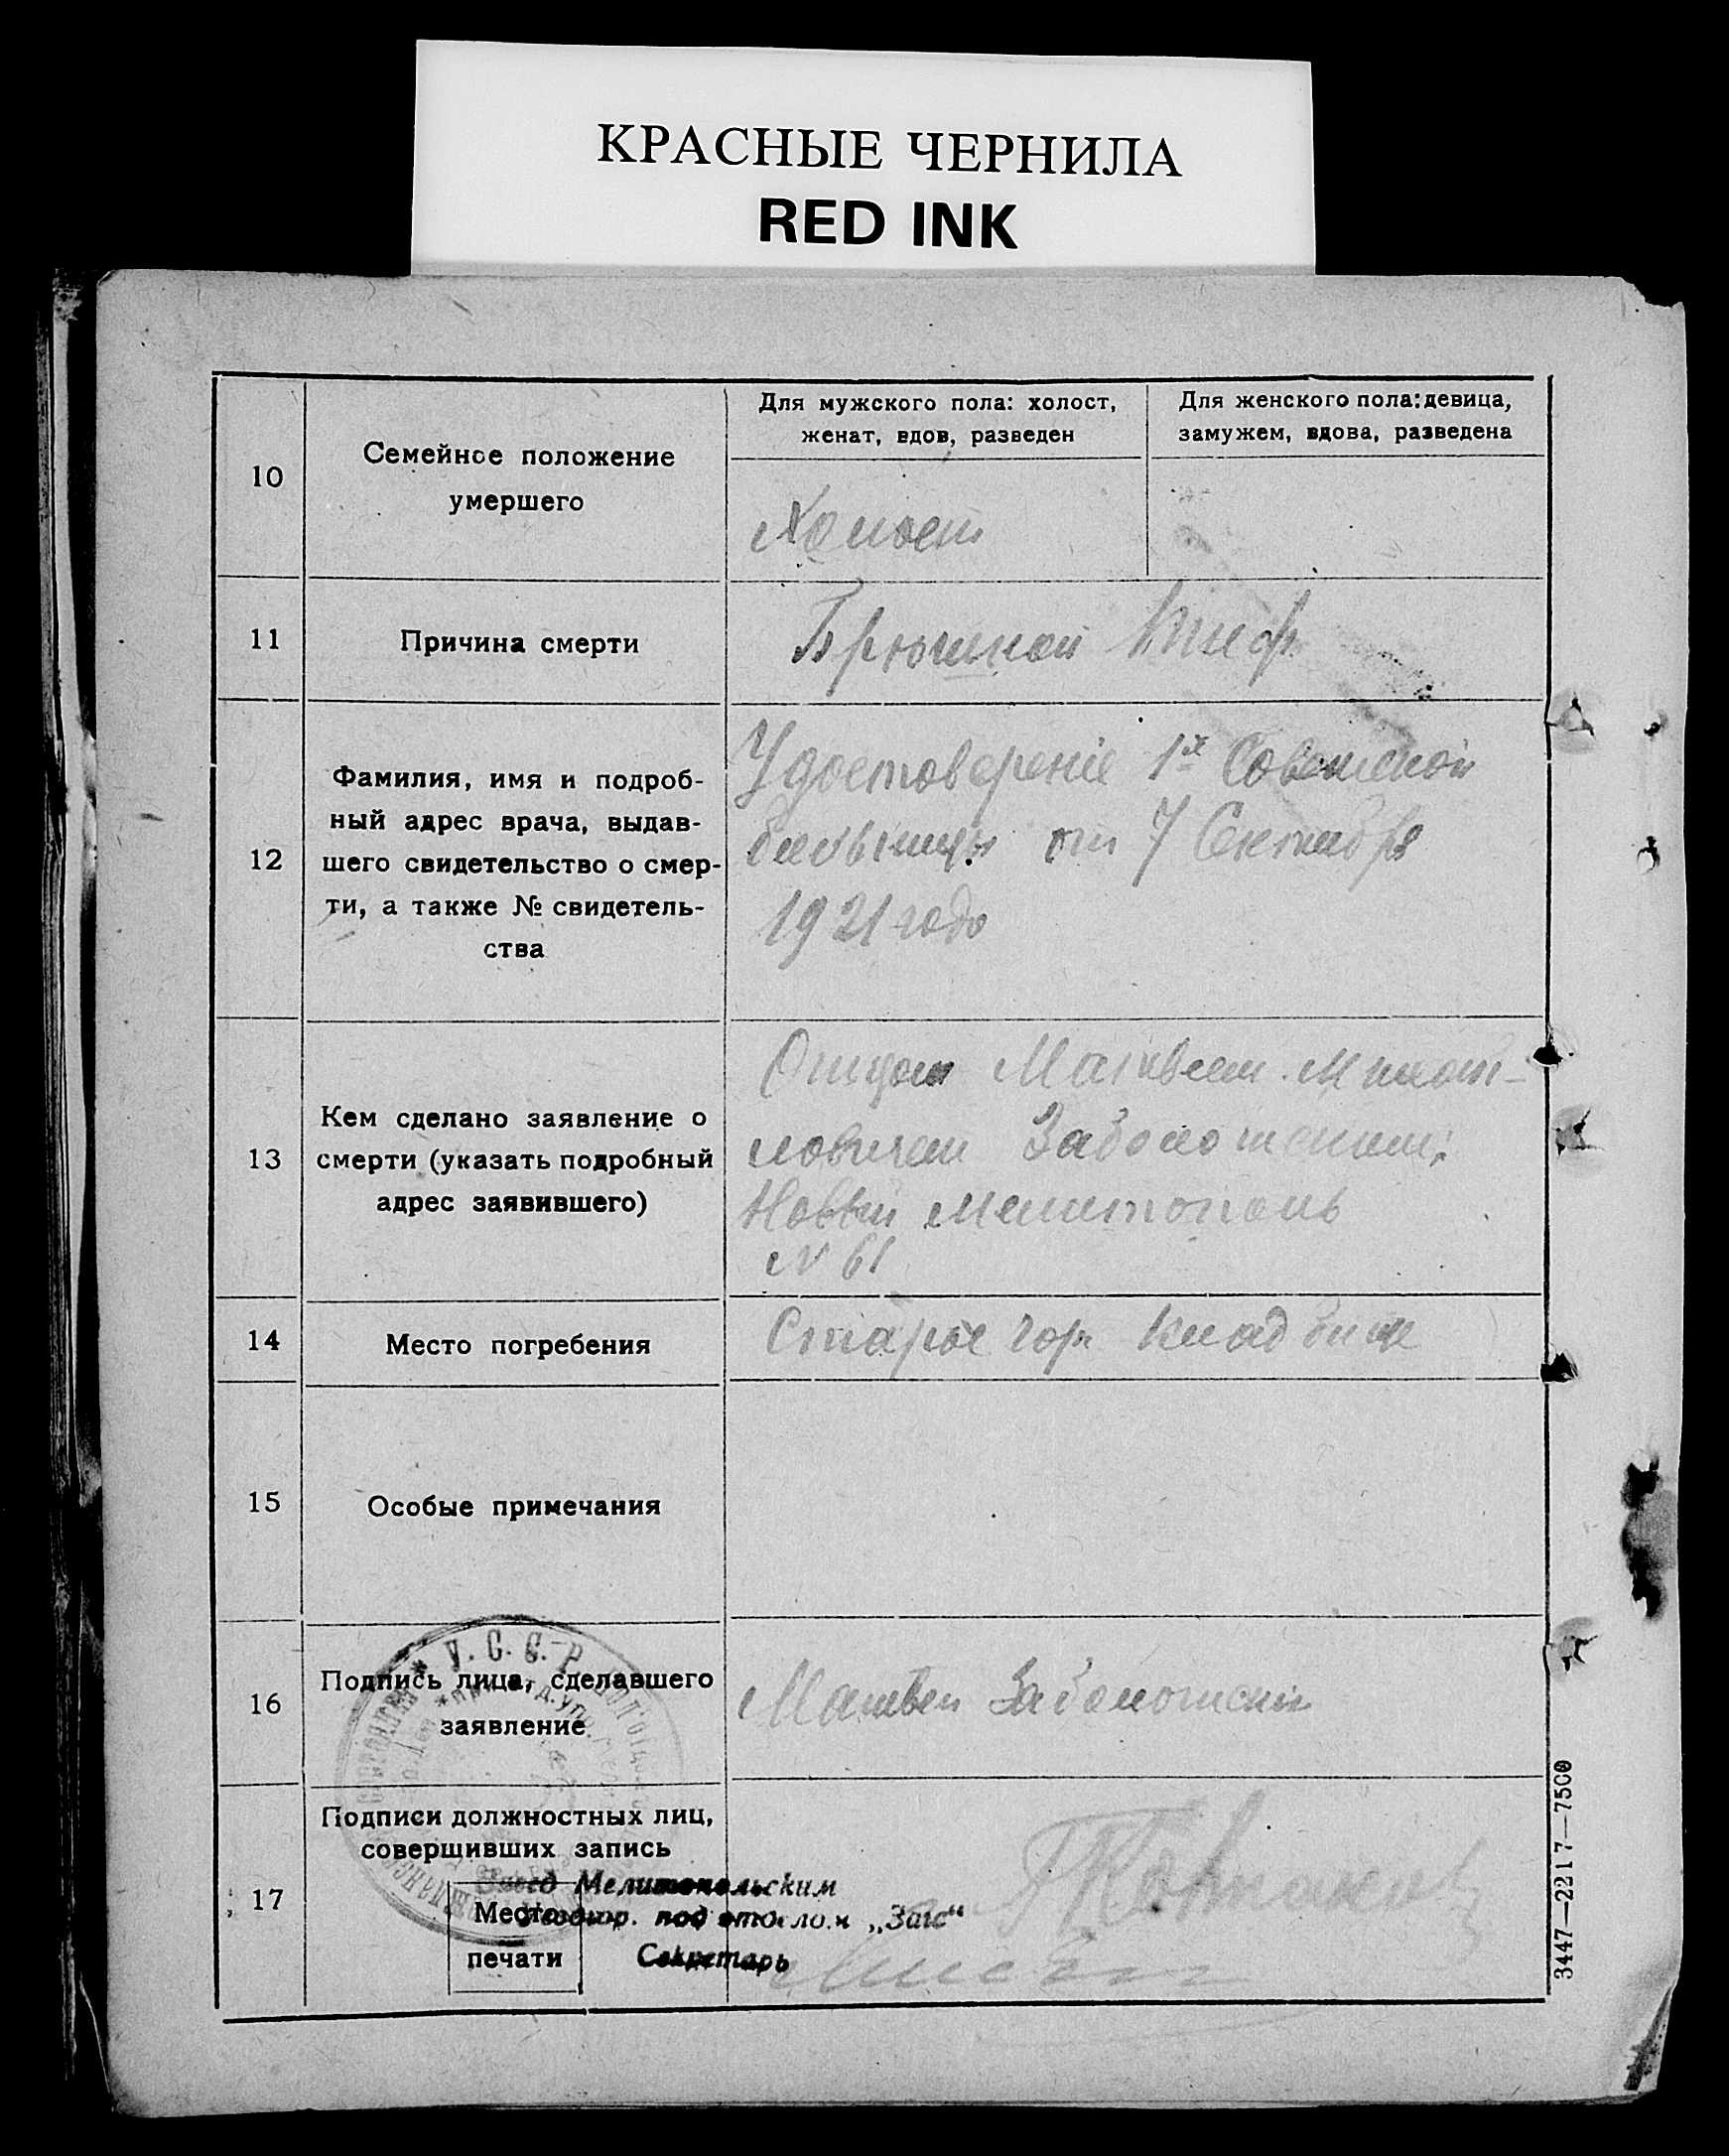 КРАСНЫЕ ЧЕРНИЛА
RED INK
10
Семейное положение
умершего
Для мужского пола: холост,
женат, вдов, разведен
Для женского пола: девица,
замужем, вдова, разведена
Холост
11
Причина смерти
Брюшной тиф
12
Фамилия, имя и подроб-
ный адрес врача, выдав-
шего свидетельство о смер-
ти, а также № свидетель-
ства
Удостоверенiе 1й Советской
больницы от 7 Сентября
1921 года
13
Кем сделано заявление о
смерти (указать подробный
адрес заявившего)
Отцом Матвеем
Заболотским
Новый Мелитополь
N 61
14
Место погребения
Старое гор. кладбище
15
Особые примечания
16
Подпись лица, сделавшего
заявление
У. С. С. Р.
Матвей Заболотскiй
17
Подписи должностных лиц,
совершивших запись
Завед Мелитопольским
под отделом „Загс“
Секретарь
Место
печати
3447—2217—7500